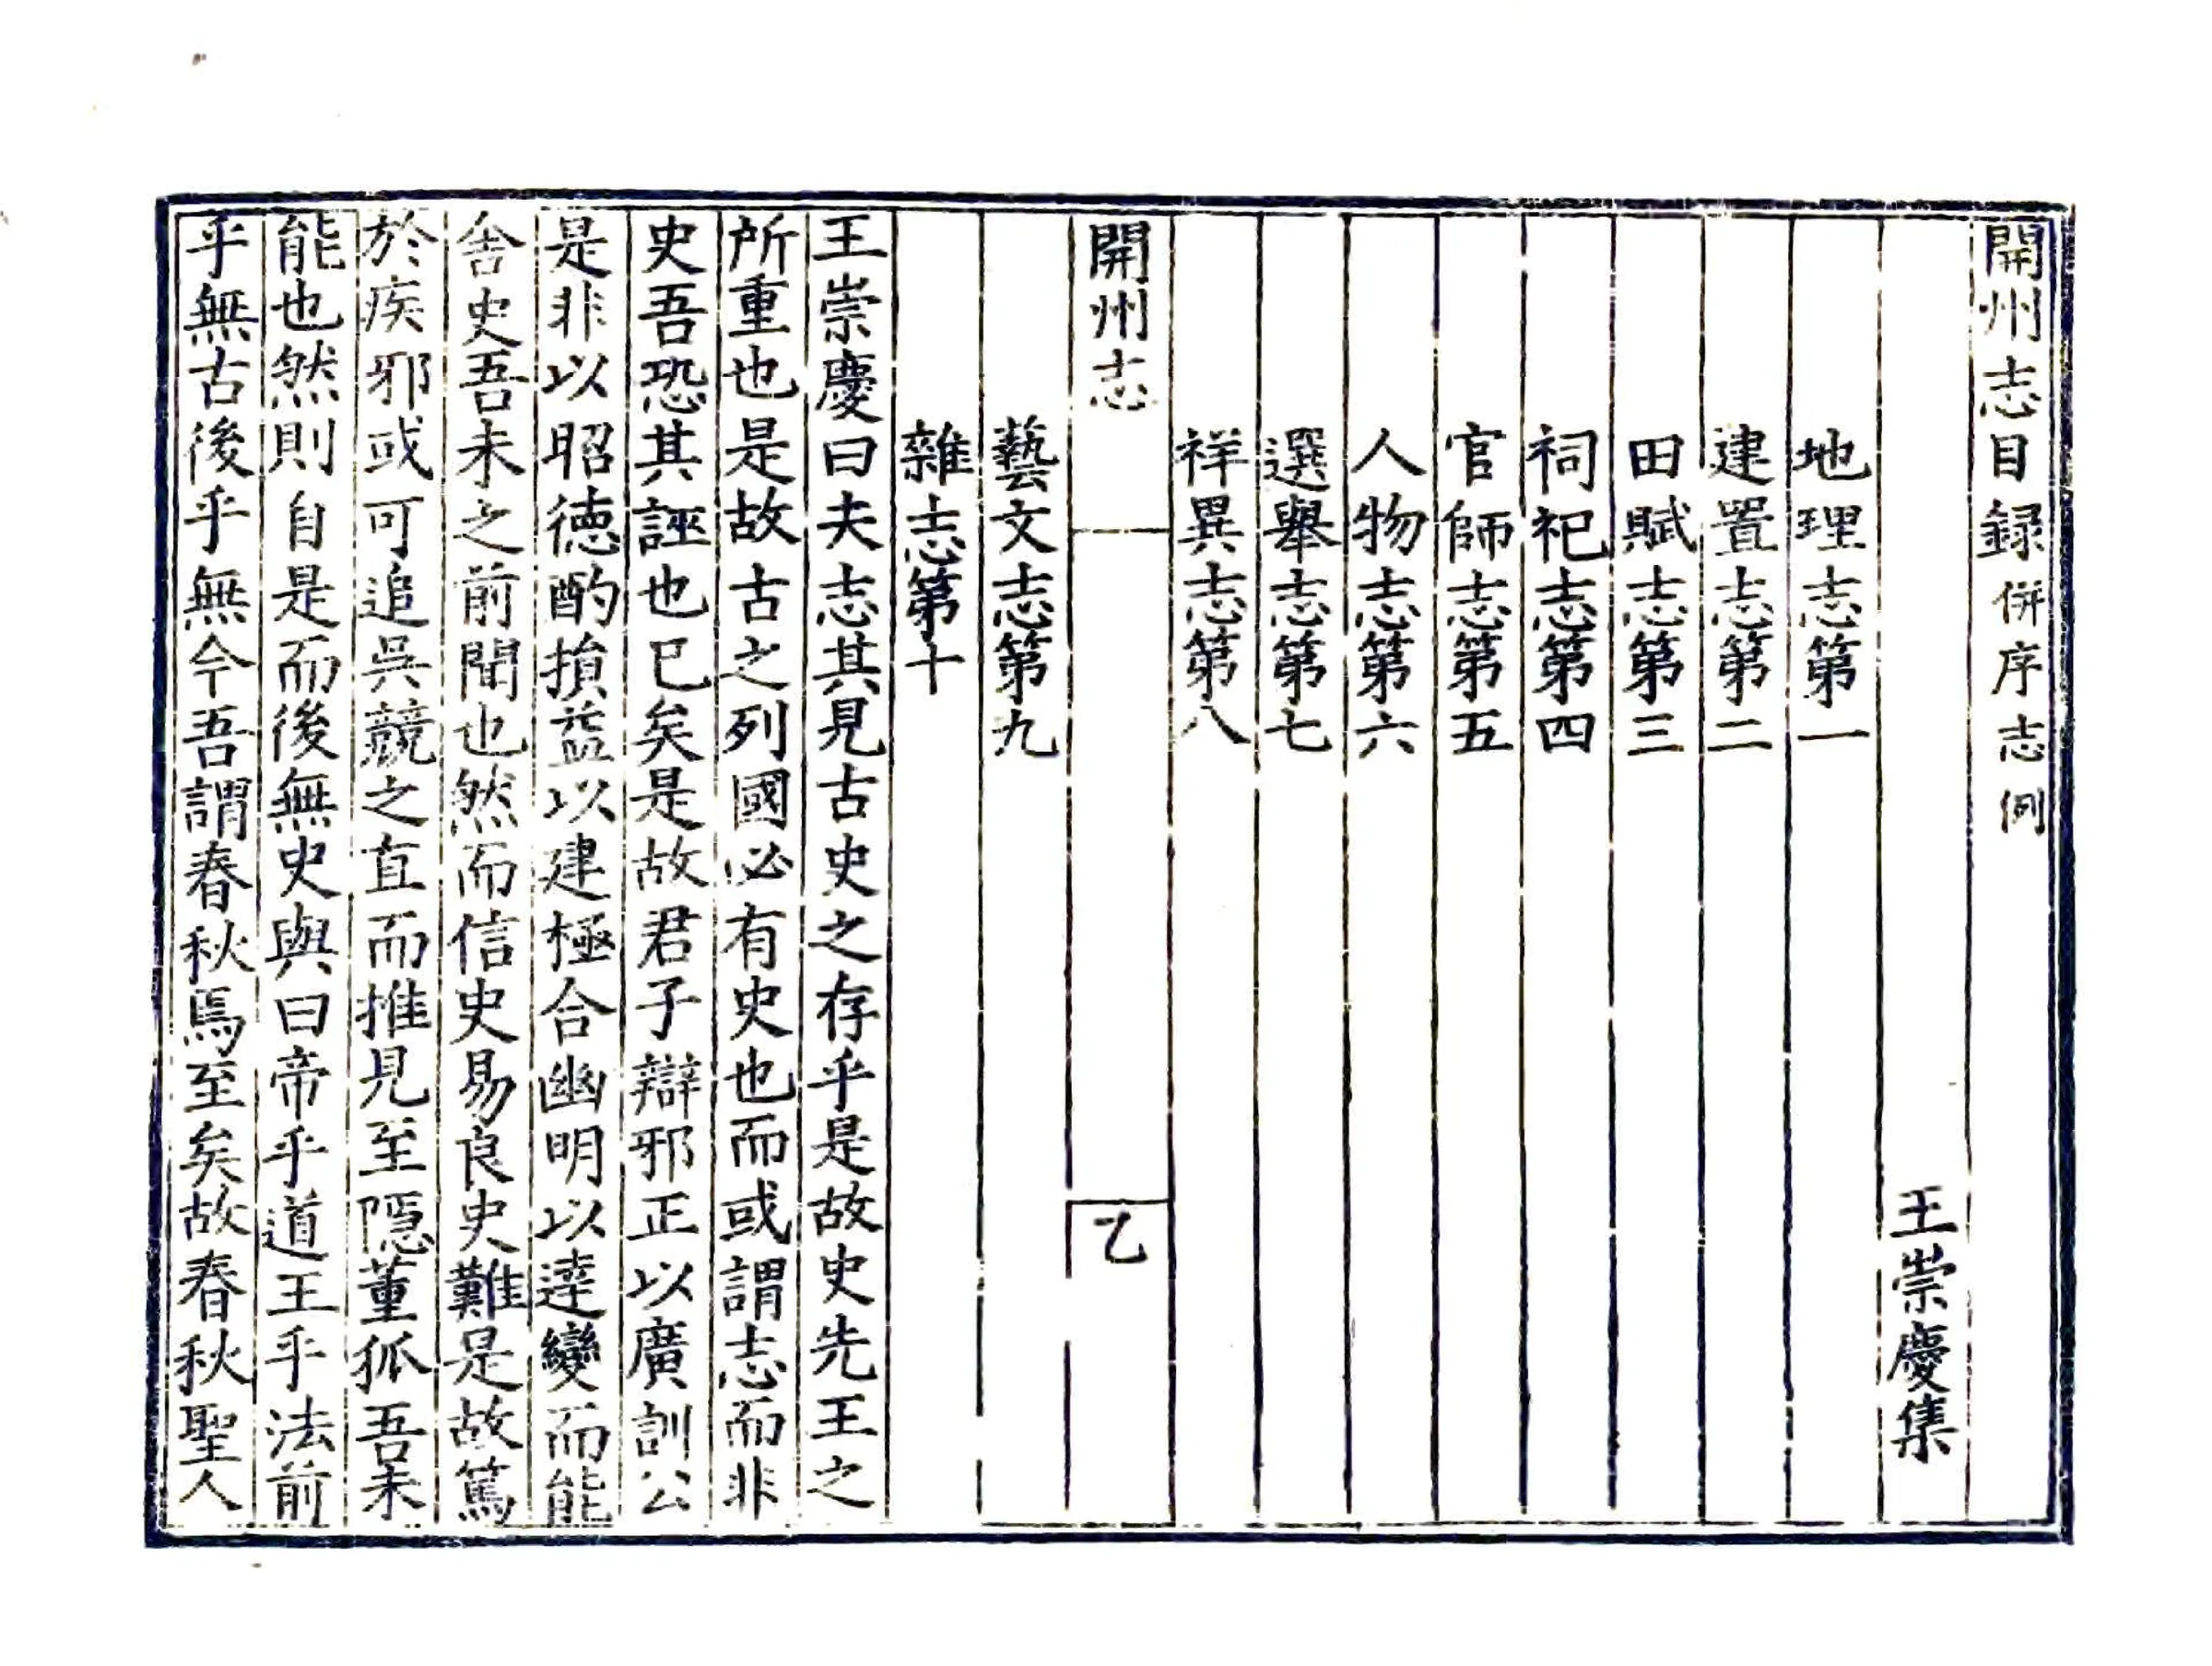 開州志目録併序志例
王崇慶集
地理志第一
建置志第二
田賦志第三
祠祀志第四
官師志第五
人物志第六
選舉志第七
祥異志第八
開州志
乙
藝文志第九
雜志第十
王崇慶曰夫志其見古史之存乎是故史先王之
所重也是故古之列國必有史也而或謂志而非
史吾恐其誣也已矣是故君子辯邪正以廣訓公
是非以昭德酌損益以建極合幽明以達變而能
舍史吾未之前聞也然而信史易良史難是故篤
於疾邪或可追吳兢之直而推見至隱董狐吾未
能也然則自是而後無史與曰帝乎道王乎法前
乎無古後乎無今吾謂春秋焉至矣故春秋聖人